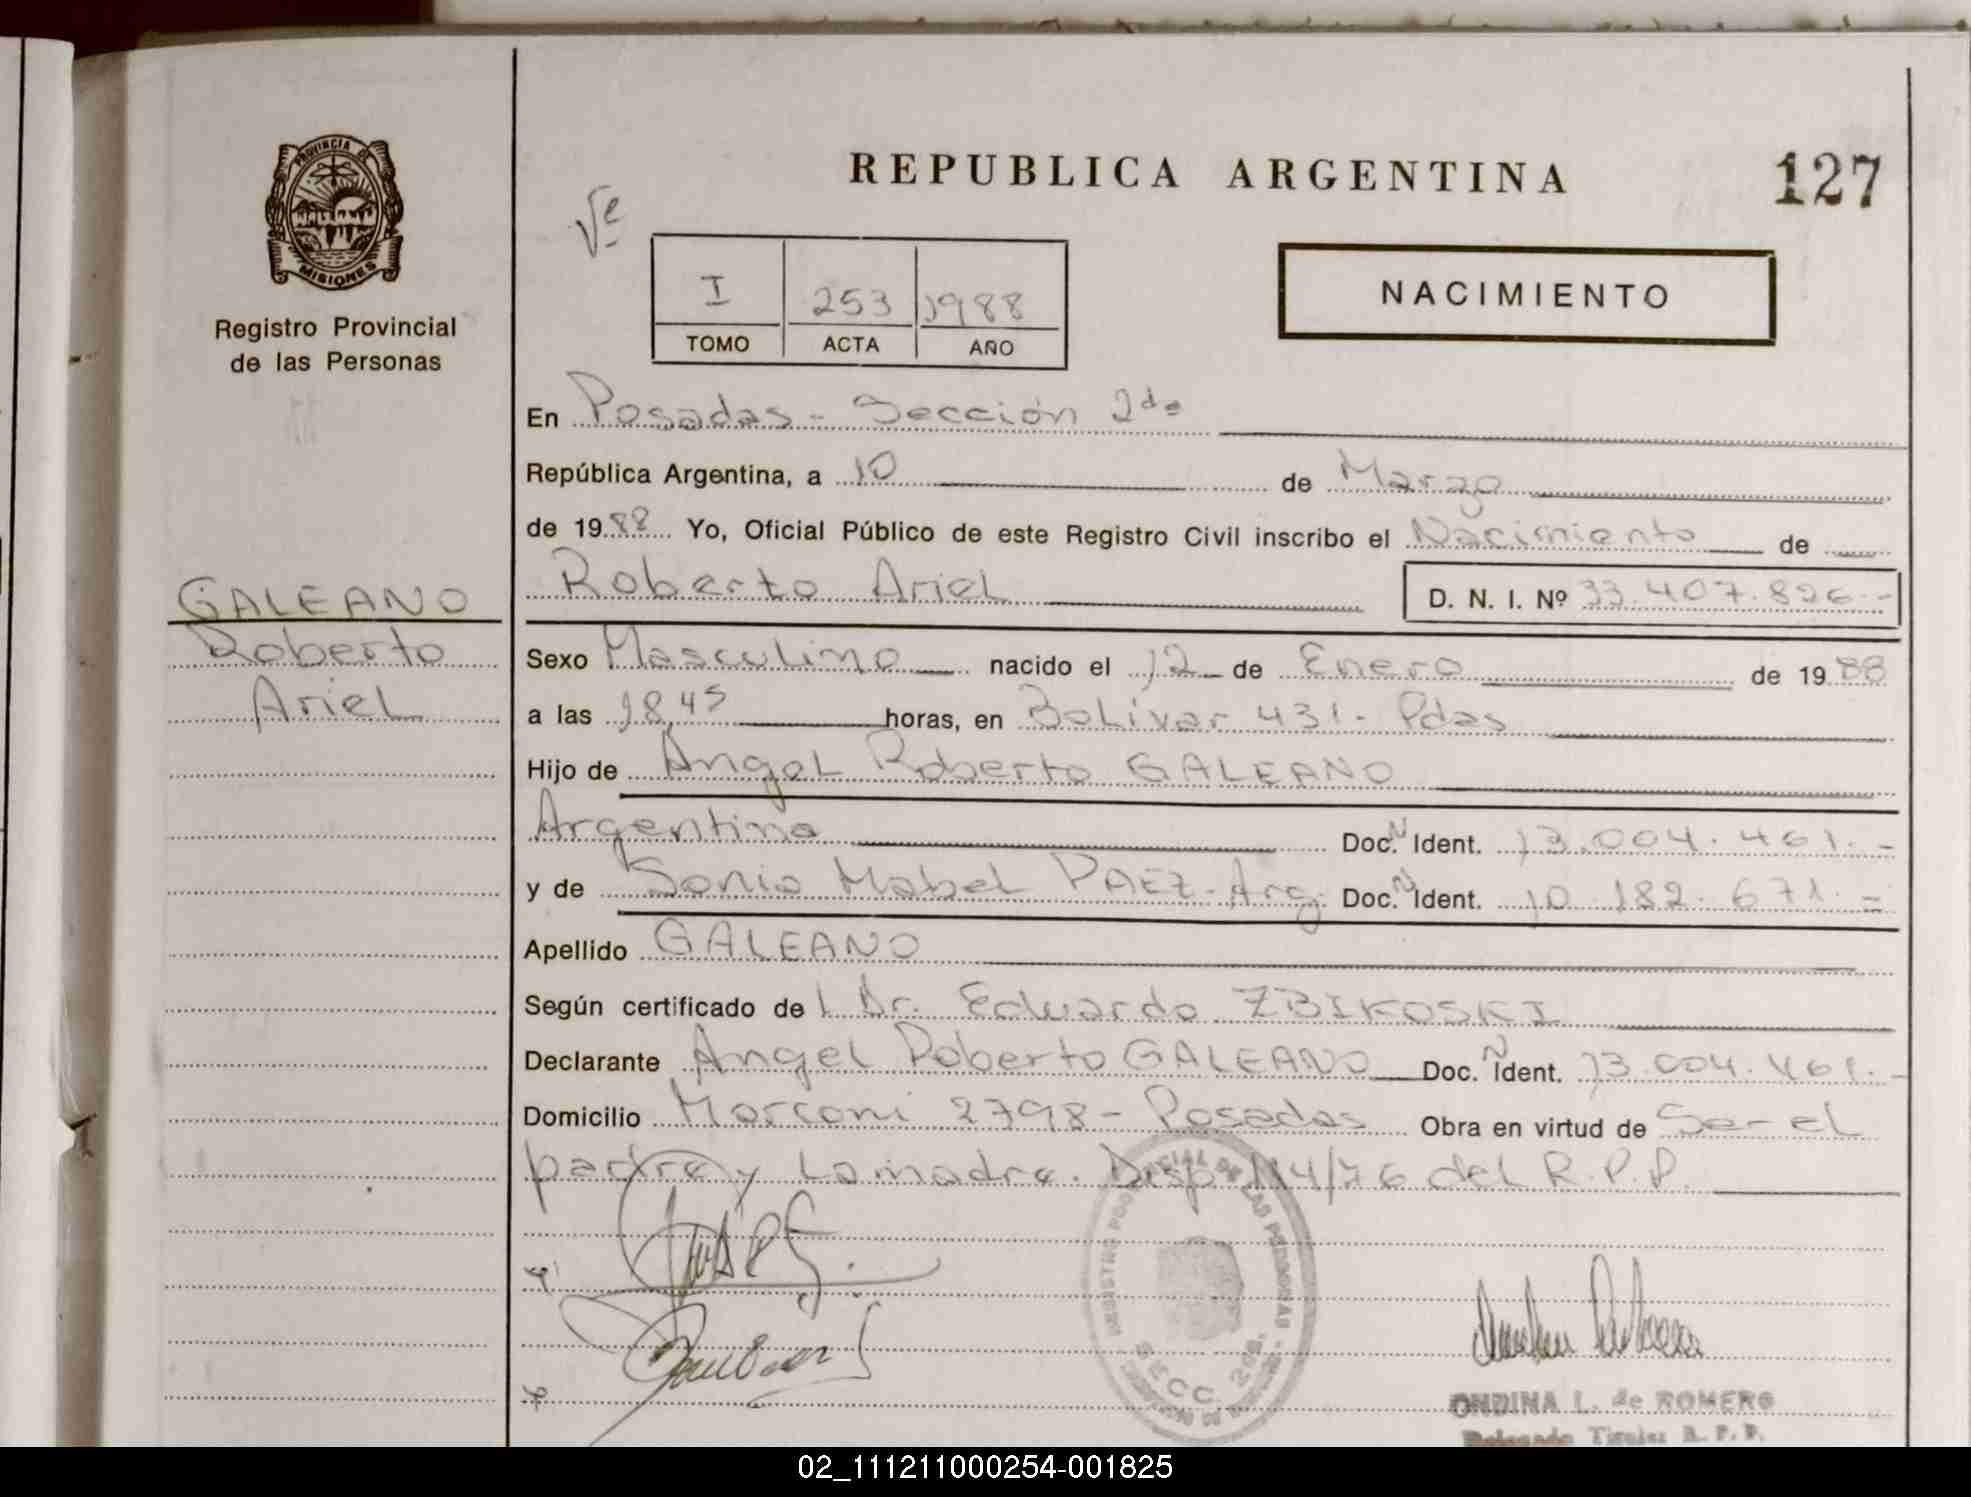 REPUBLICA ARGENTINA
127
PROVINCIA DE
MISIONES
Registro Provincial
de las Personas
I 253 1988
TOMO ACTA AÑO
NACIMIENTO
En Posadas - Sección 2da
República Argentina, a 10 de Marzo
de 1988 Yo, Oficial Público de este Registro Civil inscribo el Nacimiento de
GALEANO
Roberto
Ariel
Roberto Ariel D. N. I. Nº 33.407.826.-
Sexo Masculino nacido el 12 de Enero de 1988
a las 18,45 horas, en Bolívar 431- Pdas
Hijo de Angel Roberto GALEANO
Argentino Doc. N Ident. 13.004.461.-
y de Sonia Mabel PAEZ-Arg. Doc. N Ident. 10.182.671.=
Apellido GALEANO
Según certificado de l Dr. Eduardo ZBIKOSKI
Declarante Angel Roberto GALEANO Doc. N Ident. 13.004.461.-
Domicilio Marconi 2798- Posadas Obra en virtud de Ser el
padre y La madre. Disp. 114/76 del R.P.P.
SECC. 2da.
ONDINA L. de ROMERO
Delegado Titular R. P. P.
02_111211000254-001825